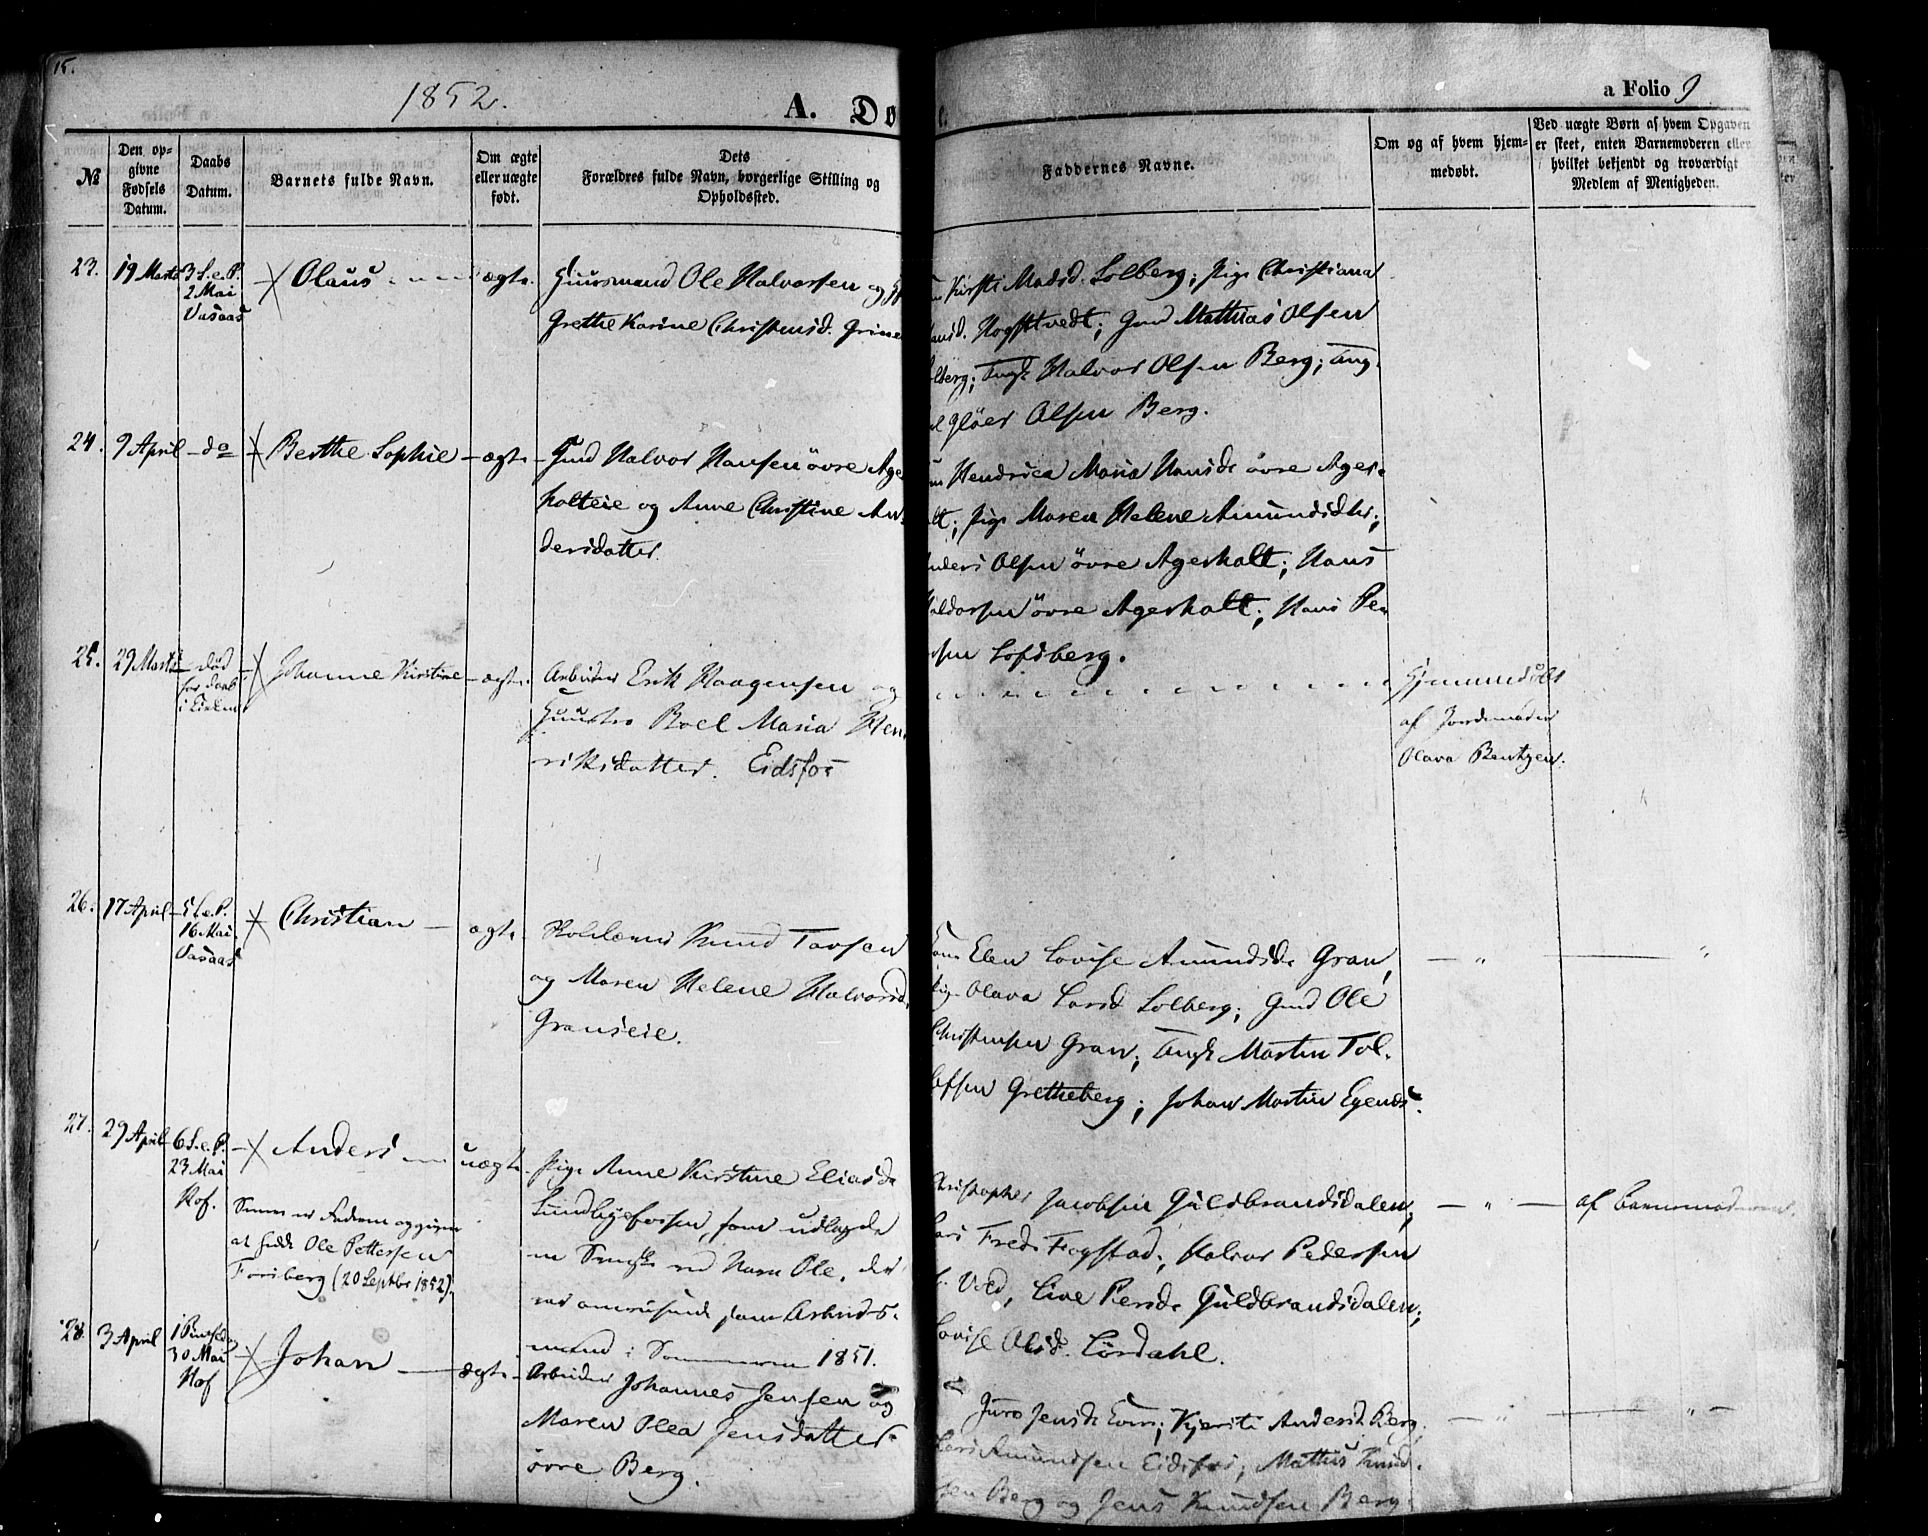 15.
1852.
A. Do
e.
a Folio 9
№
Den op-
givne
Fødsels
Datum.
Daabs
Datum.
Barnets fulde Navn.
Om ægte
eller uægte
født.
Dets
Forældres fulde Navn, borgerlige Stilling og
Opholdssted.
Faddernes Navne.
Om og af hvem hjem-
medøbt.
Ved uægte Børn af hvem Opgaven
er skeet, enten Barnemoderen eller
hvilket bekjendt og troværdigt
Medlem af Menigheden.
23. 19 Marts 3 S. e. P.
2 Mai
Vasaas
Olaus
ægte
Huusmand Ole Halvorsen og
Grethe Karine Christensd. Grine
Kirsti Madsd. Solberg; Pige Christiana
Hansd. Hogstvedt; Gmd Mathias Olsen
Solberg; Ungk Halvor Olsen Berg; Ung-
Gløer Olsen Berg.
24. 9 April do
Berthe Sophie
ægte
Gmd Halvor Hansen øvre Age
holteie og Anne Christine An-
dersdatter.
Hendrica Maria Hansdr øvre Ager-
olt; Pige Maren Helene Amundsdtr;
Anders Olsen øvre Agerholt; Hans
Haldorsen øvre Agerholt; Hans Pe-
rsen Lofsberg.
25. 29 Marts død
før daab
i Kirken
Johanne Kirstine
ægte
Arbeider Erik Haagensen og
Huustro Boel Maria Hen-
riksdatter. Eidsfos
Hjemmedøbt
af Jordemoder
Olava Bentzen.
26. 17 April 5 S. e. P.
16 Mai
Vasaas
Christian
ægte
Skolelærer Knud Tovsen
og Maren Helene Halvorsd.
Granseie.
Kone Elen Lovise Amundsdr Gran,
Pige Olava Larsd Solberg; Gmd Ole
Christensen Gran; Ungk Martin Tol-
lefsen Gretheberg; Johan Martin Egends.
27. 29 April 6 S. e. P.
23 Mai
Hof.
Anders
uægte
Senere er Faderen opgiven
at hedde Ole Pettersen
Forsberg (20 Septbr 1852).
Pige Anne Kirstine Eliasdr
Sundbyefossen, som udlagde
en Svenske ved Navn Ole, der
var omreisende som Arbeids-
mand i Sommeren 1851.
Christopher Jacobsen Guldbrandsdalen;
Lars Freds Fogstad; Halvor Pedersen
Vold, Live Persdr Guldbrandsdalen;
Lovise Olsd. Lørdahl.
af Barnemoderen.
28. 3 April 1 Pintsedag
30 Mai
Hof
Johan
ægte
Arbeider Johannes Jensen og
Maren Olea Jensdatter
øvre Berg.
Juro Jensdr Eom; Kjersti Andersd. Berg,
Lars Amundsen Eidsfos; Mathis Knud-
sen Berg og Jens Knudsen Berg.